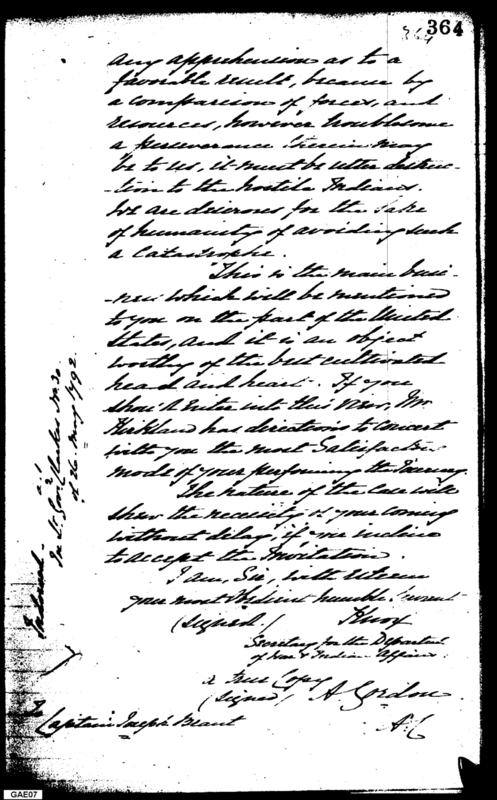 364
364
any apprehension as to a
favorable result, because by
a comparison of forces, and
resources, however troublesome
a perseverance therein may
be to us, it must be utter destruc-
-tion to the hostile Indians.
We are desirous for the sake
of humanity of avoiding such
a Catastrophe.
This is the main busi-
-ness which will be mentioned
to you on the part of the United
States, and it is an object
worthy of the best cultivated
head and heart. If you
should enter into this view, Mr
Kirkland has directions to concert
with you the most Satisfactory
mode of your performing the Journey.
The nature of the Case will
shew the necessity of your coming
without delay, if you incline
to accept the Invitation.
I am, Sir, with esteem
your most obedient humble Servant
(signed) Knox
Secretary for the Department
of War & Indian Affairs
a True Copy
(signed) A Gordon
To
Captain Joseph Brant
Inclosed
In Lt. Govr. Clarkes No. 30
of 26 May 1792
GAE07